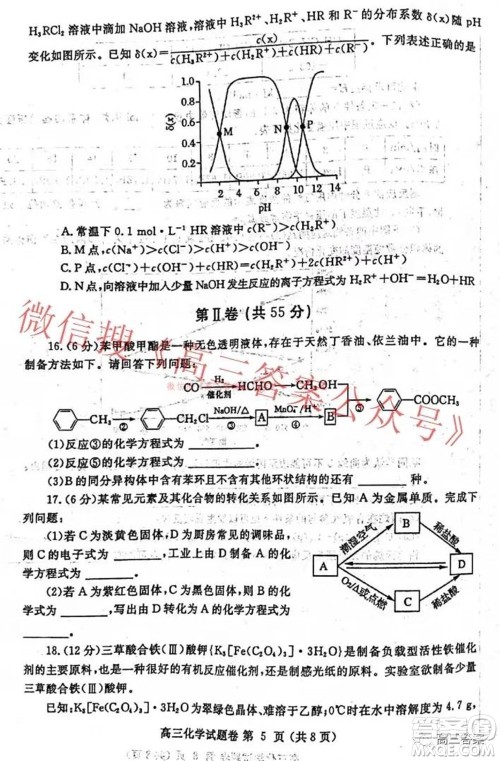 H₃RCl₂ 溶液中滴加 NaOH 溶液,溶液中 H₃R²⁺、H₂R⁺、HR 和 R⁻ 的分布系数 δ(x) 随 pH
变化如图所示。已知 δ(x)=c(x)/[c(H₃R²⁺)+c(H₂R⁺)+c(HR)+c(R⁻)]。下列表述正确的是
δ(x)
1.0
0.8
0.6
0.4
0.2
M
N
P
2 4 6 8 10 12 14
pH
A. 常温下 0.1 mol·L⁻¹ HR 溶液中 c(R⁻)>c(H₂R⁺)
B. M 点,c(Na⁺)>c(Cl⁻)>c(H⁺)>c(OH⁻)
C. P 点,c(Cl⁻)+c(OH⁻)+c(HR)=c(H₂R⁺)+2c(HR²⁺)+c(H⁺)
D. N 点,向溶液中加入少量 NaOH 发生反应的离子方程式为 H₂R⁺+OH⁻=H₂O+HR
第Ⅱ卷(共 55 分)
16.(6 分)苯甲酸甲酯是一种无色透明液体,存在于天然丁香油、依兰油中。它的一种
制备方法如下。请回答下列问题:
CO H₂ 催化剂 HCHO CH₃OH
CH₃ ② CH₂Cl NaOH/△ ③ A MnO₄⁻/H⁺ ④ B ⑤ COOCH₃
(1)反应③的化学方程式为
(2)反应⑤的化学方程式为
(3)B 的同分异构体中含有苯环且不含有其他环状结构的还有 种。
17.(6 分)某常见元素及其化合物的转化关系如图所示。已知 A 为金属单质。完成下
列问题:
(1)若 C 为淡黄色固体,D 为厨房常见的调味品,
则 C 的电子式为 ,工业上由 D 制备 A 的化
学方程式为 。
(2)若 A 为紫红色固体,C 为黑色固体,则 B 为
,写出由 D 转化为 A 的化学方程式为
。
A
B
C
D
潮湿空气
稀盐酸
O₂/△或点燃
稀盐酸
18.(12 分)三草酸合铁(Ⅲ)酸钾{K₃[Fe(C₂O₄)₃]·3H₂O}是制备负载型活性铁催化
剂的主要原料,也是一种很好的有机反应催化剂,还是制感光纸的原料。实验室欲制备少量
三草酸合铁(Ⅲ)酸钾。
已知:K₃[Fe(C₂O₄)₃]·3H₂O 为翠绿色晶体、难溶于乙醇;0℃时在水中溶解度为 4.7 g,
高三化学试题卷 第 5 页(共 8 页)
微信搜《高三答案公众号》
高三答案